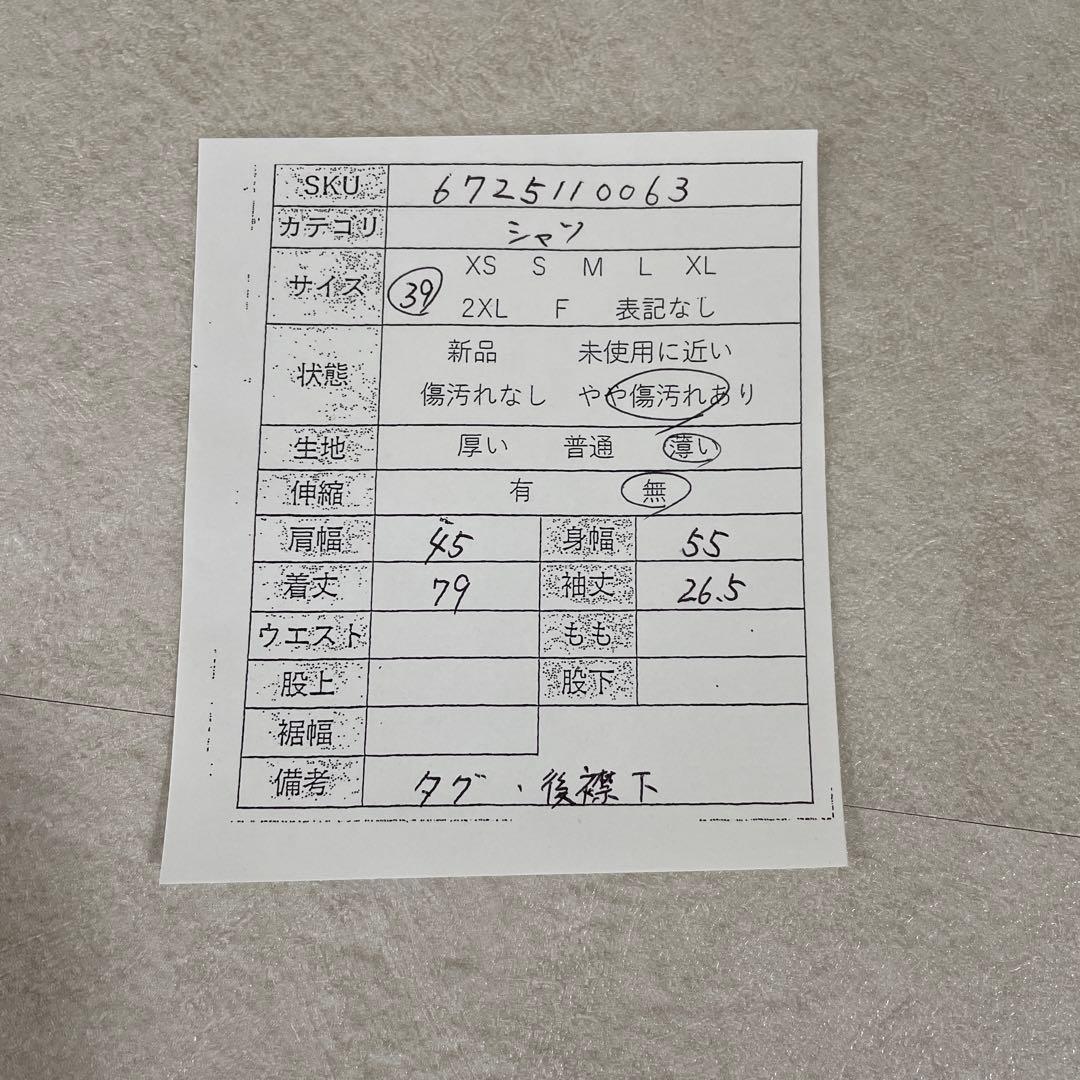 SKU 6725110063
カテゴリ シャツ
サイズ 39 XS S M L XL
2XL F 表記なし
状態 新品 未使用に近い
傷汚れなし やや傷汚れあり
生地 厚い 普通 薄い
伸縮 有 無
肩幅 45 身幅 55
着丈 79 袖丈 26.5
ウエスト もも
股上 股下
裾幅
備考 タグ、後襟下